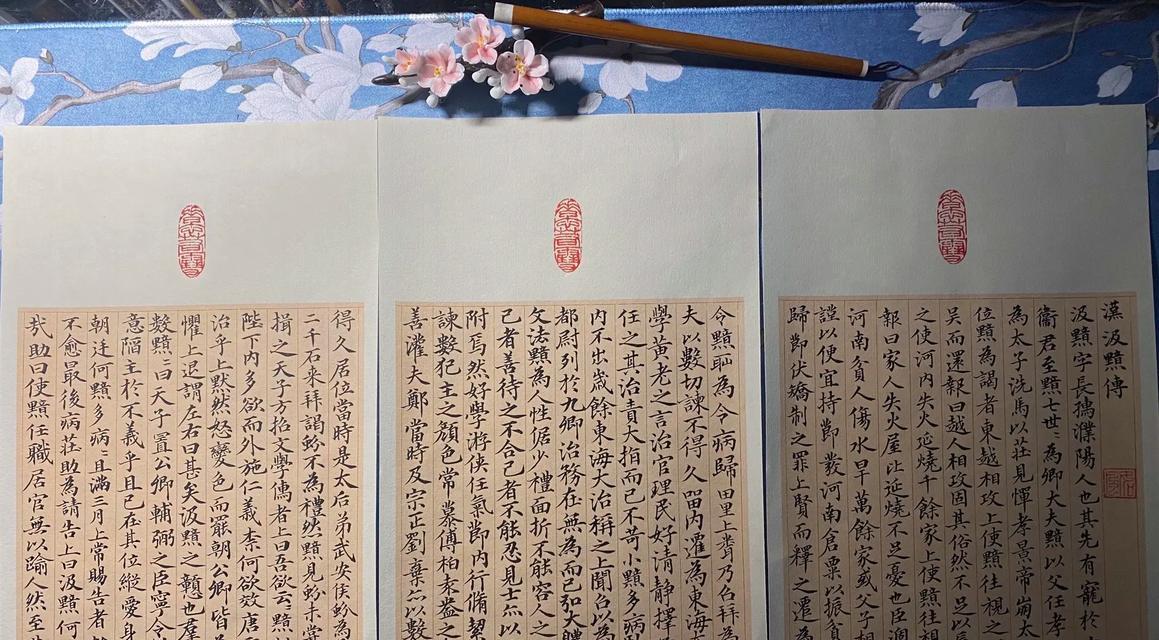 漢汲黯傳
汲黯字長孺濮陽人也其先有寵於
衞君至黯七世〻為卿大夫黯以父任孝
為太子洗馬以莊見憚孝景帝崩太
位黯為謁者東越相攻上使黯往視之
吳而還報曰越人相攻固其俗然不足以辱
之使河内失火延燒千餘家上使黯往視
報曰家人失火屋比延燒不足憂也臣過
河南貧人傷水旱萬餘家或父子相
謹以便宜持節發河南倉粟以振貧
歸節伏矯制之罪上賢而釋之遷為
令黯恥為令病歸田里上聞乃召拜為
夫以數切諫不得久留内遷為東海
學黄老之言治官理民好清静擇
任之其治責大指而已不苛小黯多病
内不出歲餘東海大治稱之上聞召以為
都尉列於九卿治務在無為而已弘大體
文法黯為人性倨少禮面折不能容人之
己者善待之不合己者不能忍見士亦以
附焉然好學游俠任氣節内行脩絜
諫數犯主之顏色常慕傅柏袁盎之
善灌夫鄭當時及宗正劉棄亦以數
得久居位當時是太后弟武安侯蚡為
二千石来拜謁蚡不為禮然黯見蚡未嘗
揖之天子方招文學儒者上曰吾欲云〻黯
陛下内多欲而外施仁義柰何欲效唐
治乎上默然怒變色而罷朝公卿皆為
懼上退謂左右曰甚矣汲黯之戇也羣
數黯〻曰天子置公卿輔弼之臣寧令
意陷主於不義乎且已在其位縱愛身
朝廷何黯多病〻且滿三月上常賜告者
不愈最後病莊助為請告上曰汲黯何
㢤助曰使黯任職居官無以踰人然至